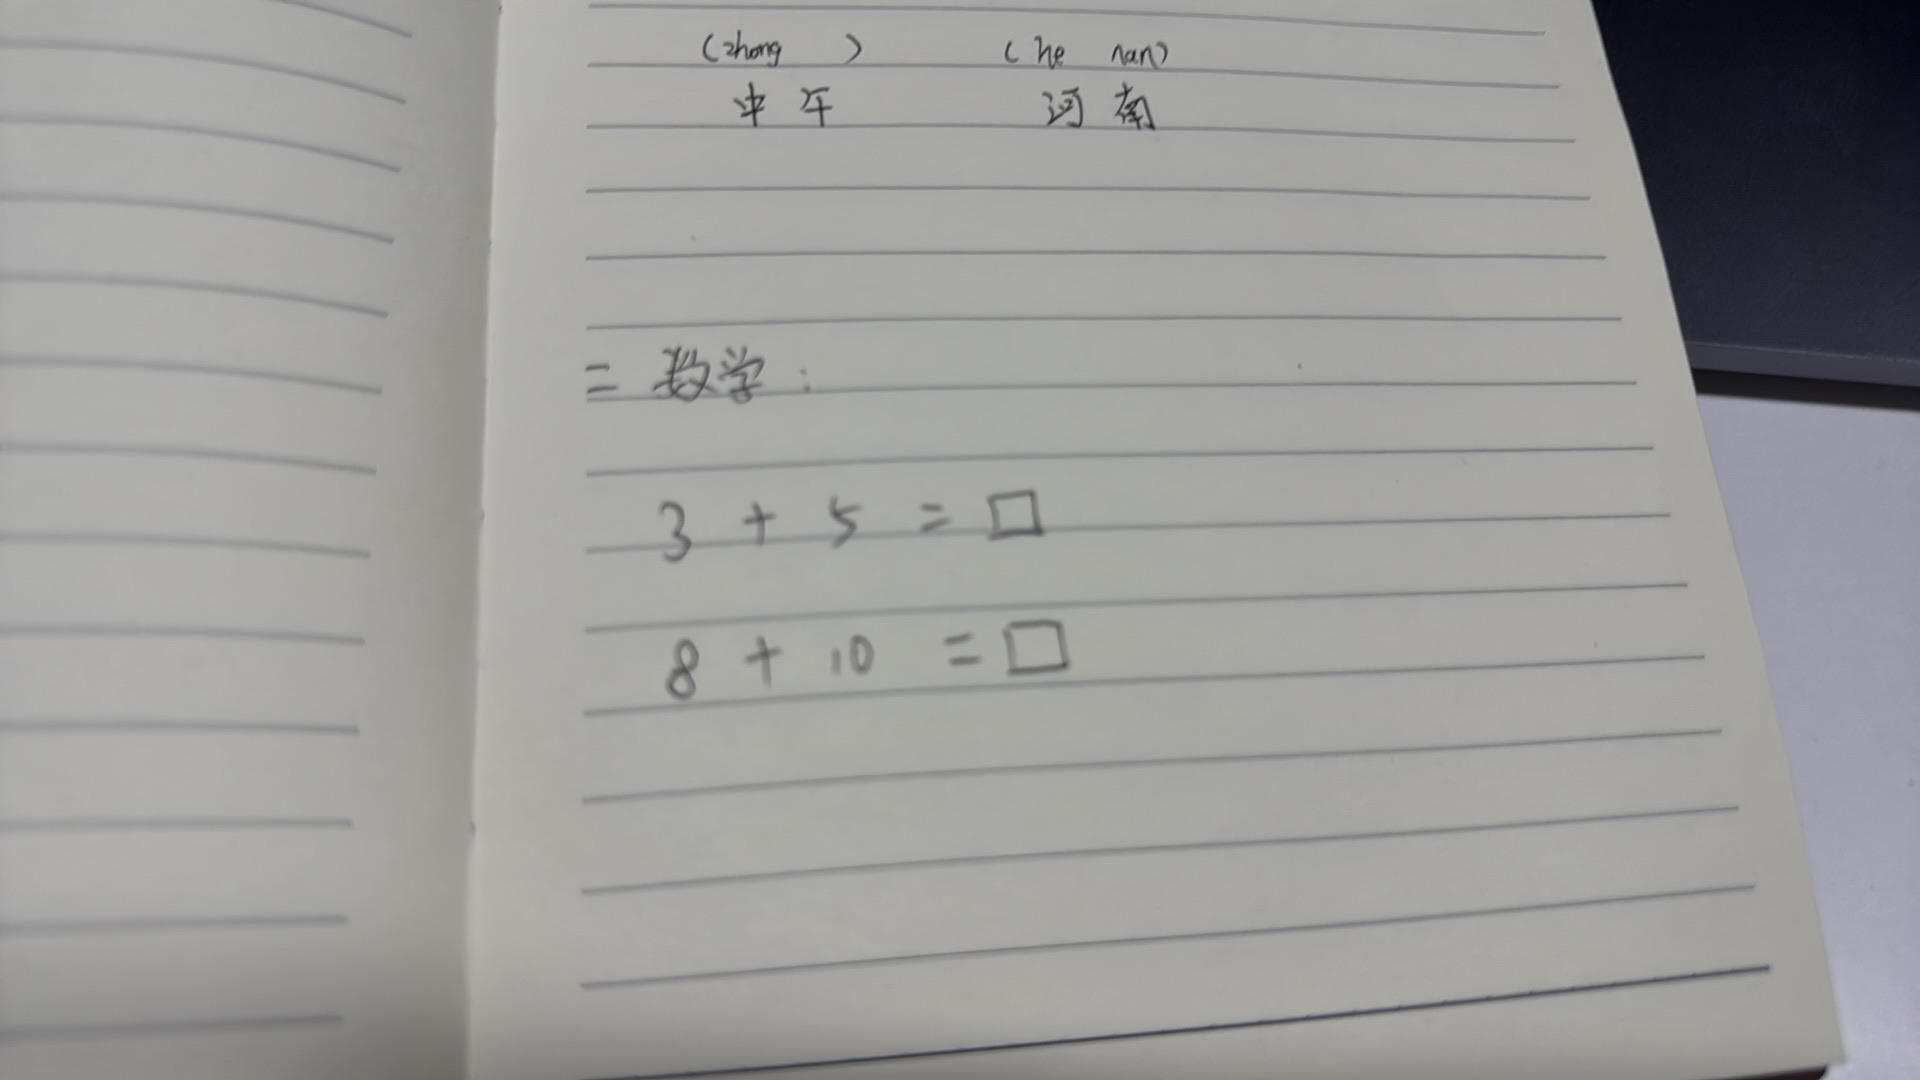 (zhong      )      (he nan)
中 午      河 南
二 数学：
3 + 5 = □
8 + 10 = □